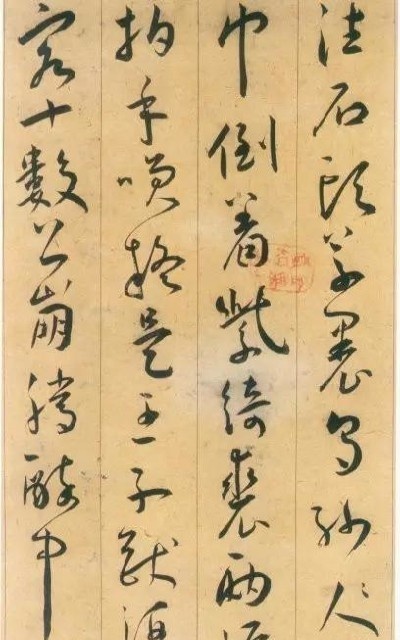 往石頭草裹烏紗人
巾倒著紫綺裘兩
拍手咲疑是王子猷酒
客十數公崩騰醉中